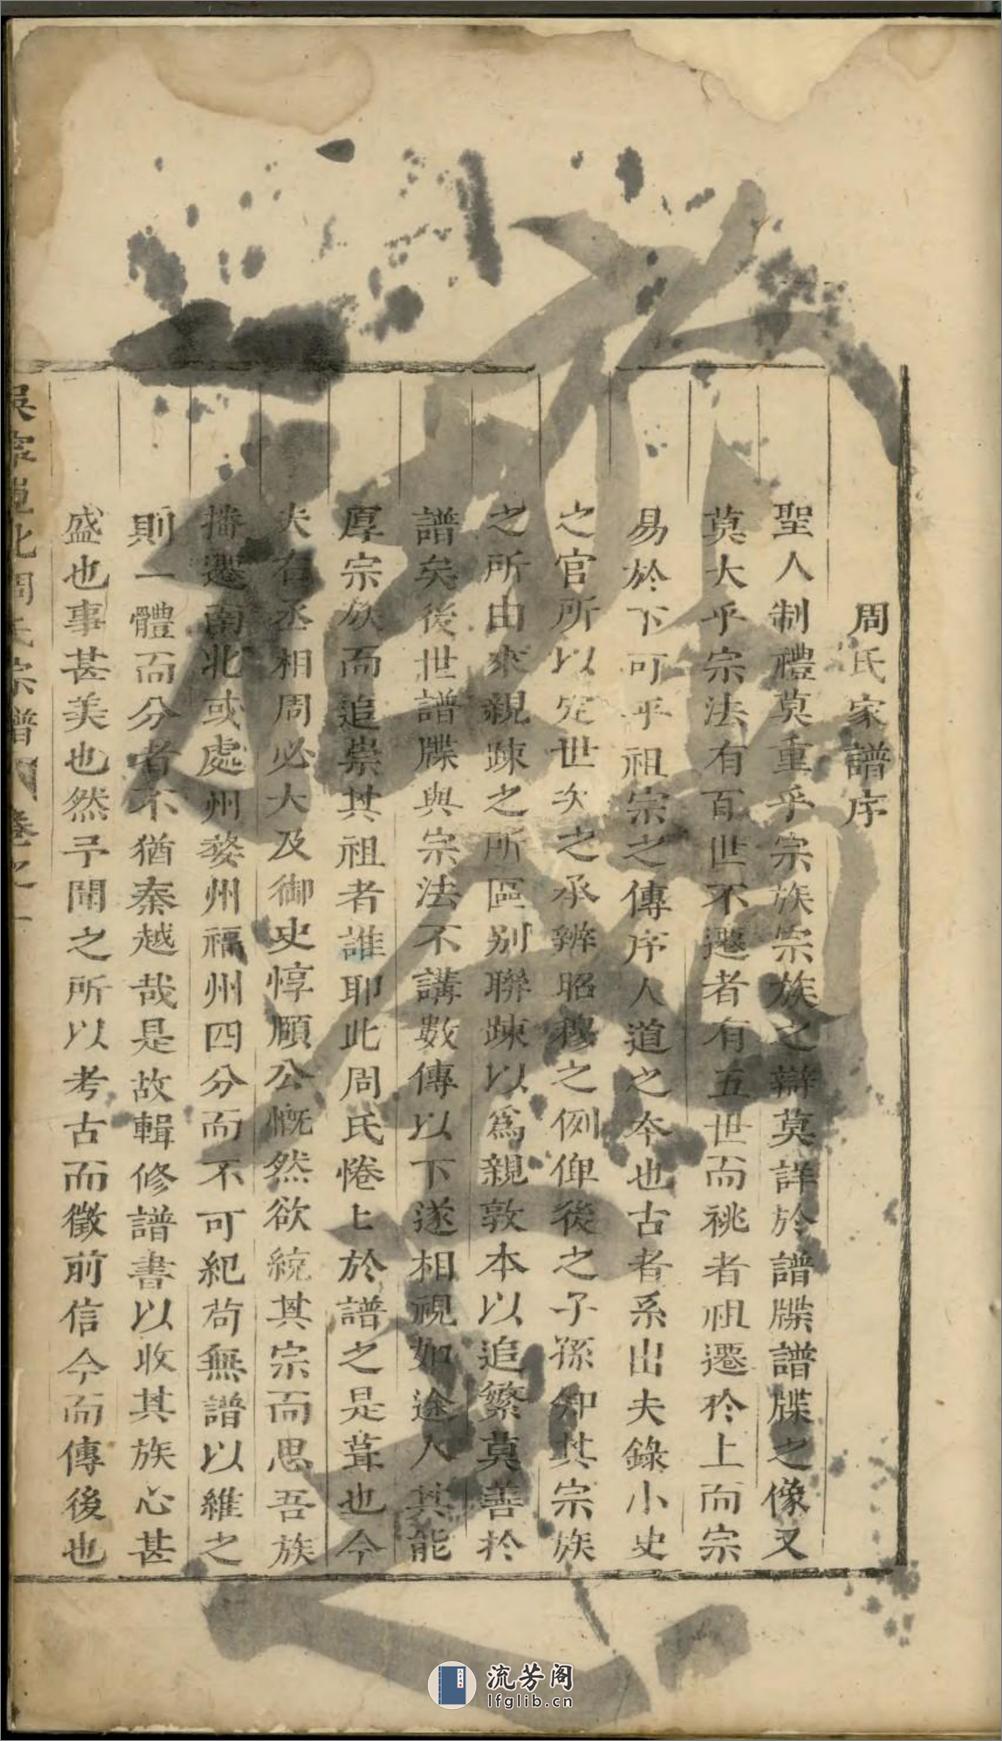 周氏家譜序
聖人制禮莫重乎宗族宗族之辯莫詳於譜牒譜牒之像又
莫大乎宗法有百世不遷者有五世而祧者祖遷於上而宗
易於下可乎祖宗之傳序人道之本也古者系出夫錄小史
之官所以定世次之承辨昭穆之例俾後之子孫知其宗族
之所由來親踈之所區别聯踈以爲親敦本以追繁莫善於
譜矣後世譜牒與宗法不講數傳以下遂相視如途人其能
厚宗族而追崇其祖者誰耶此周氏惓上於譜之是葺也今
夫右丞相周必大及御史惇頤公慨然欲統其宗而思吾族
播遷南北或處州婺州福州四分而不可紀苟無譜以維之
則一體而分者不猶秦越哉是故輯修譜書以收其族心甚
盛也事甚美也然予聞之所以考古而徵前信今而傳後也
吳寧 北周氏宗譜 卷之一
流芳阁
lfglib.cn